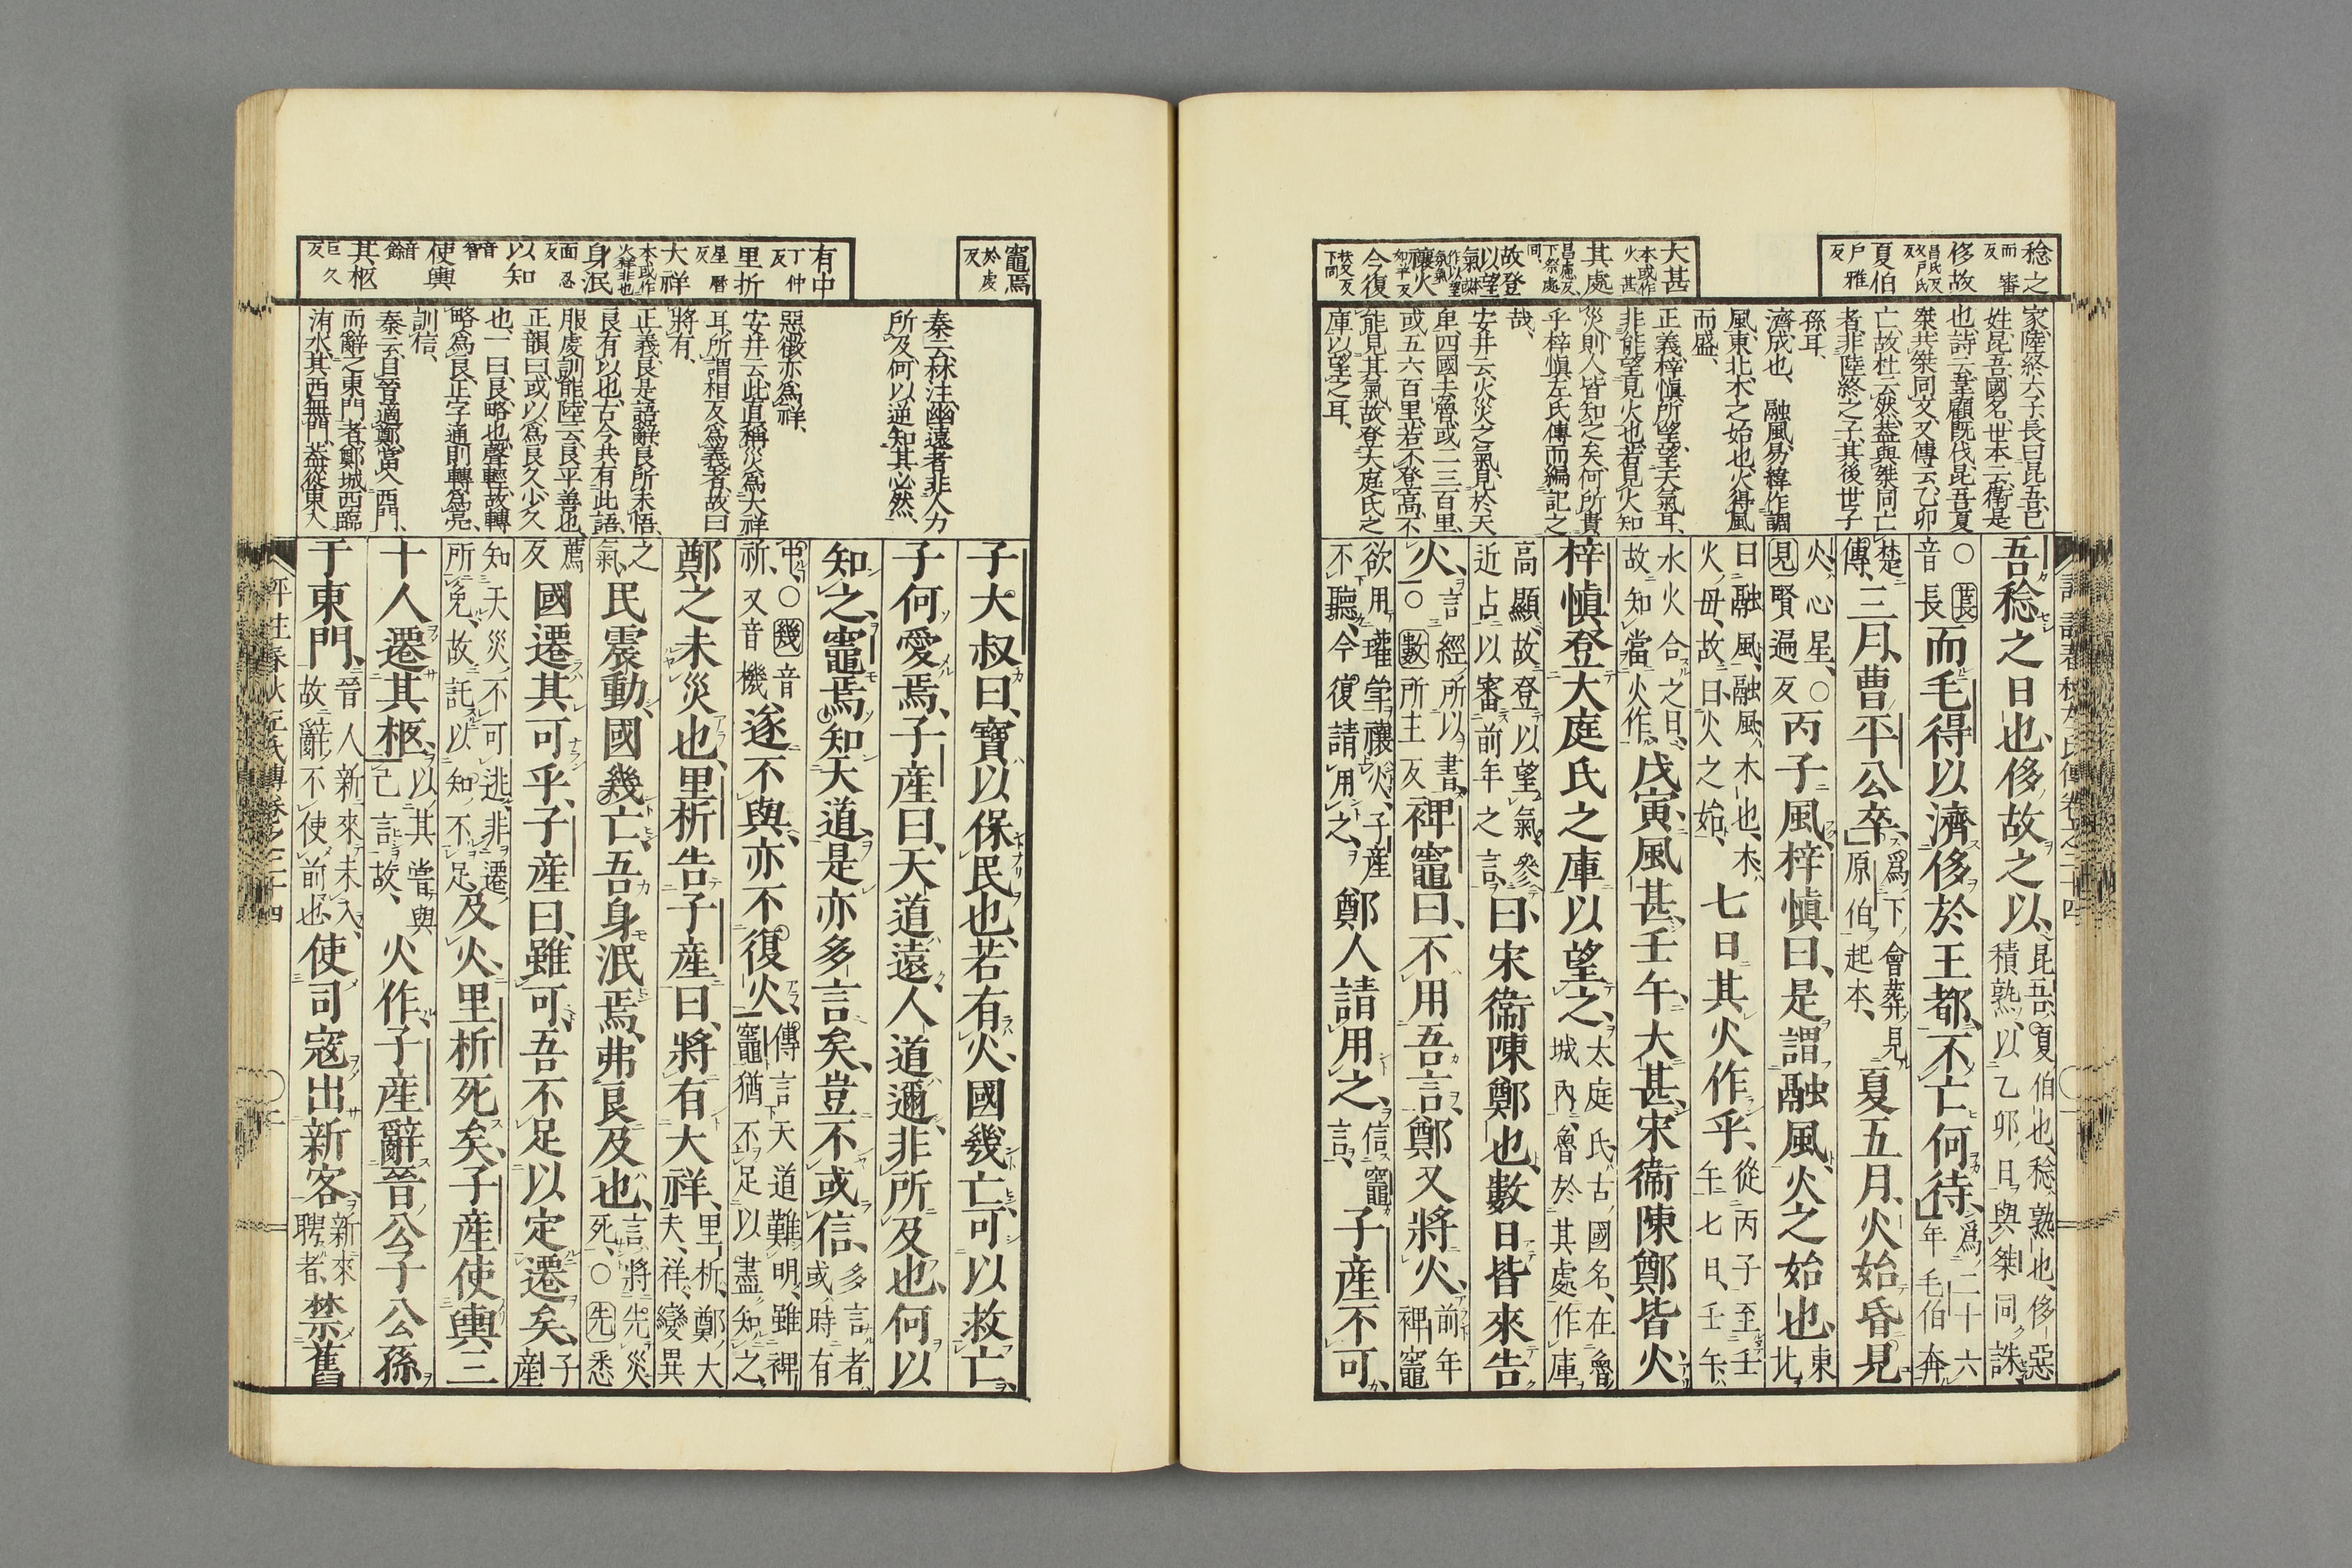 稔之
而審反
侈故
昌氏反又尸氏反
夏伯
戶雅反
大甚
本或作火甚
其處
昌慮反下祭處同
故登
以望
氣
禳火
如羊反
今復
扶又反下同
家陸終六子長曰昆吾己
姓昆吾國名世本云衞是
也詩云韋顧既伐昆吾夏
桀共桀同文又傳云乙卯
亡故杜云然葢與桀同亡
者非陸終之子其後世子
孫耳
濟成也、融風易緯作調
風東北木之始也火得風
而盛、
正義梓愼所望望天氣耳
非能望見火也若見火知
災則人皆知之矣何所貴
乎梓愼左氏傳而編記之
哉、
安井云火災之氣見於天
卑四國去魯或二三百里
或五六百里若不登高不
能見其氣故登大庭氏之
庫以望之耳、
吾稔之日也、侈故之以、昆吾夏伯也、稔熟也、侈惡積熟、以乙卯日與桀同誅
○萇音長而毛得以濟侈於王都、不亡何待、爲二十六年毛伯奔
楚傳、三月、曹平公卒、爲下會葬見原伯起本、夏五月、火始昏見
火心星、○見賢遍反丙子風、梓愼曰、是謂融風、火之始也、東北
曰融風、融風木也、木火母、故曰火之始、七日其火作乎、從丙子至壬午七日、壬午
水火合之日、故知當火作、戊寅風甚、壬午、大甚、宋衞陳鄭皆火
梓愼登大庭氏之庫以望之、大庭氏古國名、在魯城內、魯於其處作庫
高顯、故登以望氣、參近占以審前年之言、曰、宋衞陳鄭也、數日皆來告
火、言經所以書、○數所主反裨竈曰、不用吾言、鄭又將火、前年裨竈
欲用瓘斝禳火、子産不聽、今復請用之、鄭人請用之、信竈言、子産不可、
竈焉
於虔反
有中
丁仲反
里折
星曆反
大祥
本或作火祥非也
身泯
面忍反
以知
音智
使輿
音餘
其柩
巨久反
秦云林注幽遠者非人力
所及何以逆知其必然、
惡徵亦爲祥、
安井云此直稱災爲大祥
耳所謂相反爲義者故曰
將有、
正義良是語辭良所未悟
良有以也古今共有此語
服虔訓能陸云良平善也
正韻曰或以爲良久少久
也一曰良略也聲輕故轉
略爲良正字通則轉爲亮
訓信、
秦云自晉適鄭當入西門
而辭之東門者鄭城西臨
洧水其西無門葢從東入
子大叔曰、寶以保民也、若有火、國幾亡、可以救亡、
子何愛焉、子産曰、天道遠、人道邇、非所及也、何以
知之、竈焉知天道、是亦多言矣、豈不或信、多言者、或時有
中、○幾音祈、又音機遂不與、亦不復火、傳言天道難明、雖裨竈猶不足以盡知之、
鄭之未災也、里析告子産曰、將有大祥、里析、鄭大夫、祥、變異
之氣、民震動、國幾亡、吾身泯焉、弗良及也、言將先災死、○先悉
薦反國遷其可乎、子産曰、雖可、吾不足以定遷矣、子産
知天災不可逃、非遷所免、故託以知不足、及火、里析死矣、子産使輿三
十人遷其柩、以其嘗與己言故、火作、子産辭晉公子公孫
于東門、晉人新來未入、故辭不使前也、使司寇出新客、新來聘者、禁舊